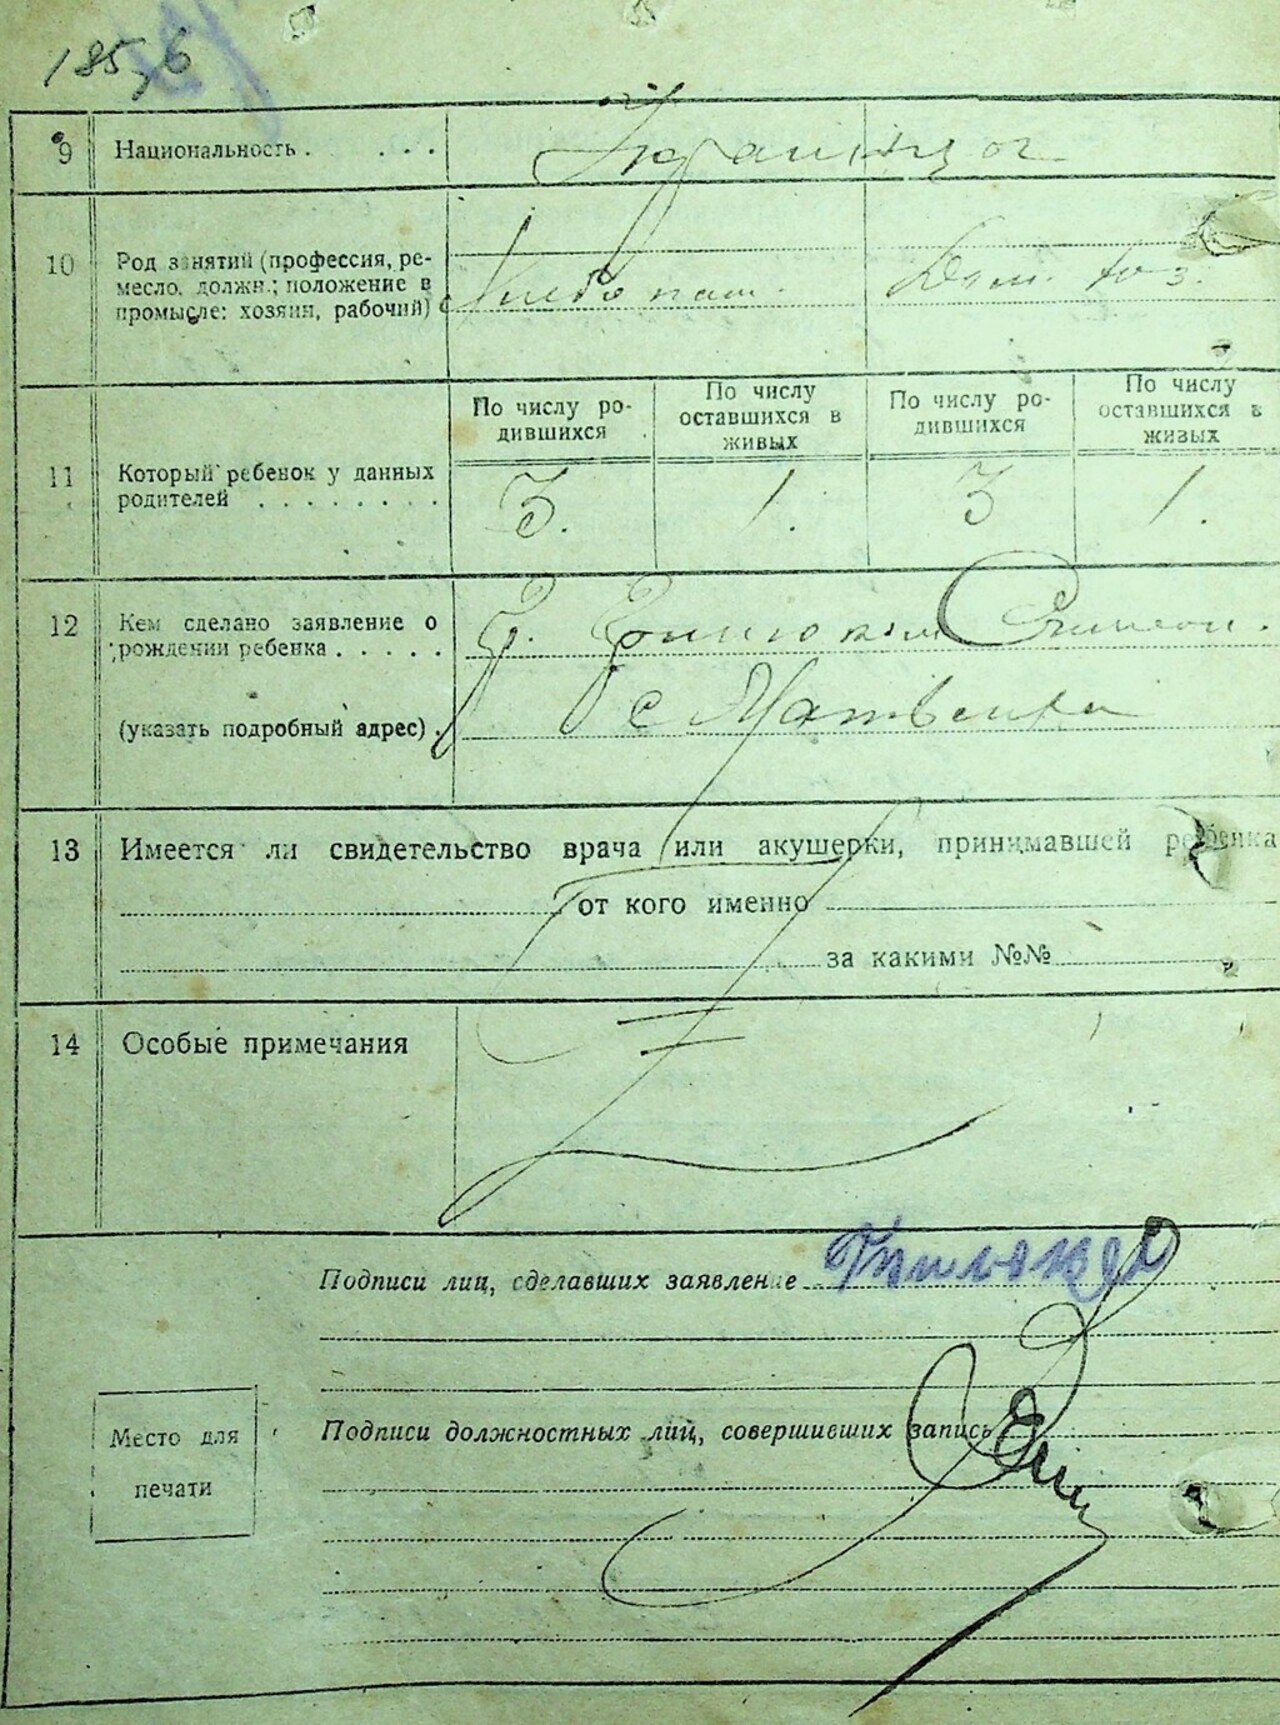 185,6
9 Национальность . . . . Украинцы
10 Род занятий (профессия, ре-
месло, должн.; положение в
промысле: хозяин, рабочий)
Хлебопаш. Дом. хоз.
По числу ро-
дившихся
По числу
оставшихся в
живых
По числу ро-
дившихся
По числу
оставшихся в
живых
11 Который ребенок у данных
родителей . . . . . . . .
3. 1. 3 1.
12 Кем сделано заявление о
рождении ребенка . . . . .
(указать подробный адрес) .
с Матвеевка
13 Имеется ли свидетельство врача или акушерки, принимавшей ребенка
от кого именно
за какими №№
14 Особые примечания
Подписи лиц, сделавших заявление
Место для
печати
Подписи должностных лиц, совершивших запись